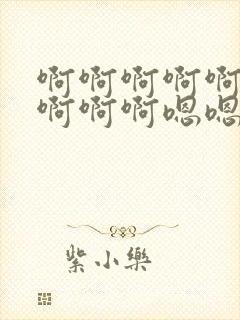 啊啊啊啊啊
啊啊啊嗯嗯
紫小樂